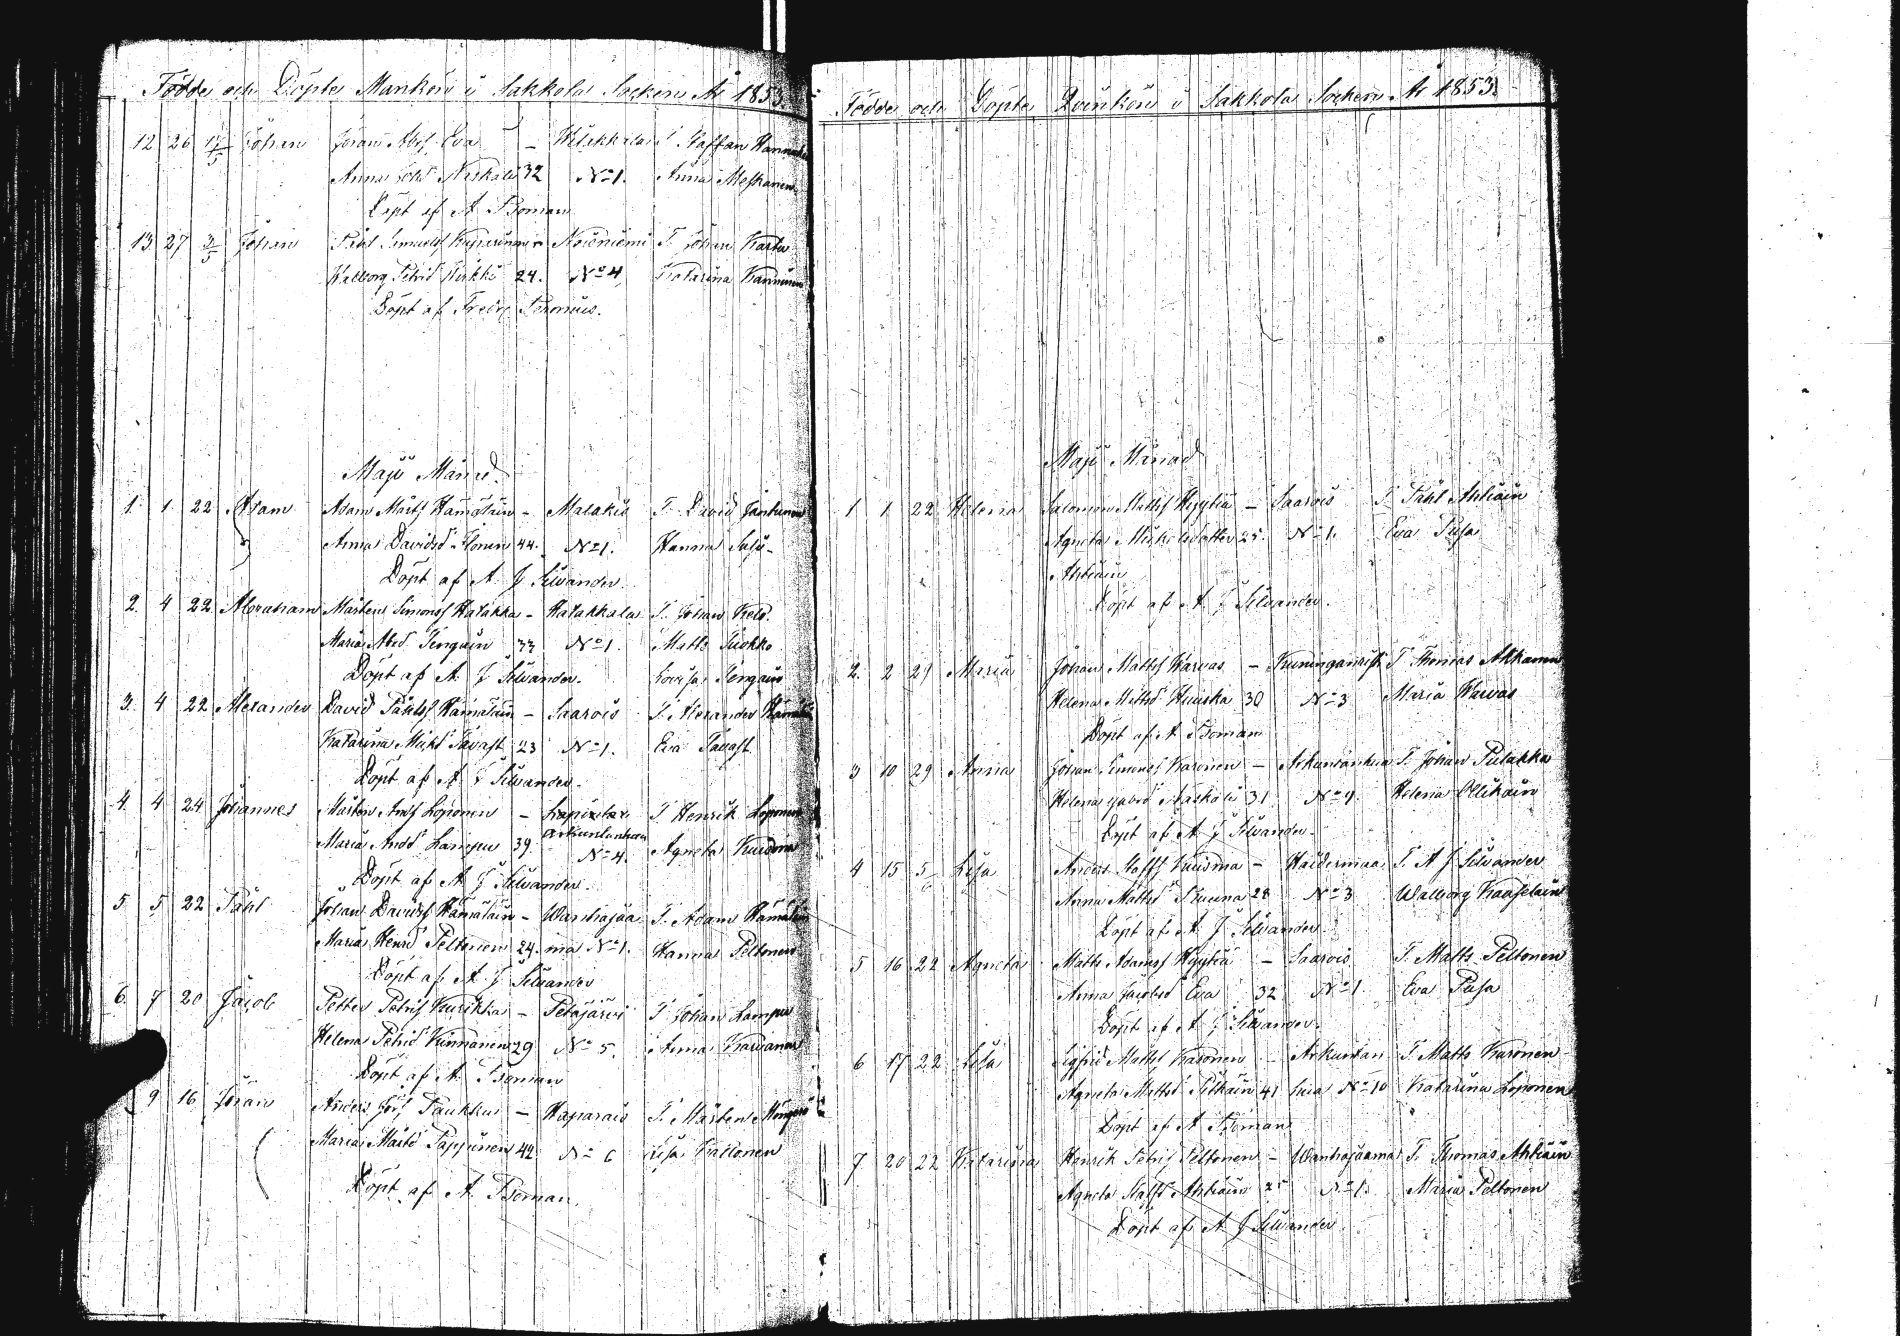 Födde och Döpte Mankön i Sakkola Socken År 1853.
12 26 Johan Jöran Abrs. Eva – Wilakkala T. Staffan
Anna 32 N:o 1. Anna Meskanen
Döpt af A. Boman
13 27 3/5 Johan Påhl Samuelss Kuparinen – Noisniemi T. Johan Karhu
Walborg Petrsd Kirkko 24. N:o 4, Katarina
Döpt af Fredr.
Maji Månad.
1. 1 22 Adam Adam Mårts Hämäläin – Matakis T. David Jantunen
Anna Davidsd Ilonen 44. N:o 1. Hanna
Döpt af A J Silvander
2. 4 22 Abraham Mårten Simonss Hatakka – Hatakkala T. Johan
Maria Abrd Tenguin 33 N:o 1. Matts Suokko
Döpt af A. J Silvander. Lovisa Tenguin
3. 4 22 Alexander David Påhlss Hämäläin – Saarois T. Alexander Hämäläin
Katarina Mickd Tavast 23 N:o 1. Eva Tavast
Döpt af A J Silvander.
4. 4 24 Johannes Mårten Ands Loponen – T. Henrik Loponen
Maria Andd Lampu 39 Arkuntanhua N:o 4. Agneta Kuisma
Döpt af A J Silvander.
5 5 22 Påhl Johan Davidss Hämäläin – Wanhajaa T. Adam Hämäläin
Maria Henrd Peltonen 24. ma N:o 1. Hanna Peltonen
Döpt af A J Silvander
6. 7 20 Jacob Petter Petrss Kurikka – Petäjärvi T. Johan Lampu
Helena Petrsd Kinnanen 29 N:o 5. Anna
Döpt af A. Boman
9 16 Jöran Anders Jörs Paukku – Haparais T. Mårten
Maria Mårtd Pappinen 42 N:o 6 Lisa Kallonen
Döpt af A. Boman.
Födde och Döpte Qvinkön i Sakkola Socken År 1853.
Maji Månad
1 1 22 Helena Salomon Mattss Hyytiä – Saarois T. Påhl Ahtiain
Agneta Mickelsdotter 25. N:o 1. Eva Pusa
Ahtiain
Döpt af A J Silvander.
2. 2 29 Maria Johan Mattss Karvas – T. Thomas Akkanen
Helena Mattsd Huuska 30 N:o 3 Maria Karvas
Döpt af A Boman
3 10 29 Anna Johan Simonss Karonen – Arkuntanhua T. Johan Pulakka
Helena Naskali 31 N:o 9. Helena Ollikain
Döpt af A J Silvander
4 15 5/6 Lisa Anders Staffs Kuisma – Haidermaa T. A J Silvander
Anna Mattsd 28 N:o 3 Walborg Kaaselain
Döpt af A. J Silvander.
5 16 22 Agneta Matts Adamss Hyytiä – Saarois T. Matts Peltonen
Anna Jacobsd Eva 32 N:o 1 Eva Pusa
Döpt af A J Silvander.
6 17 22 Lisa Sigfrid Mattss Karonen – Arkuntan T. Matts Karonen
Agneta Mattsd Pitkäin 41 hua N:o 10 Katarina Loponen
Döpt af A Boman
7 20 22 Katarina Henrik Petrss Peltonen – Wanhajaama T. Thomas Ahtiain
Agneta Staffsd Ahtiain 25 N:o 1. Maria Peltonen
Döpt af A J Silvander.